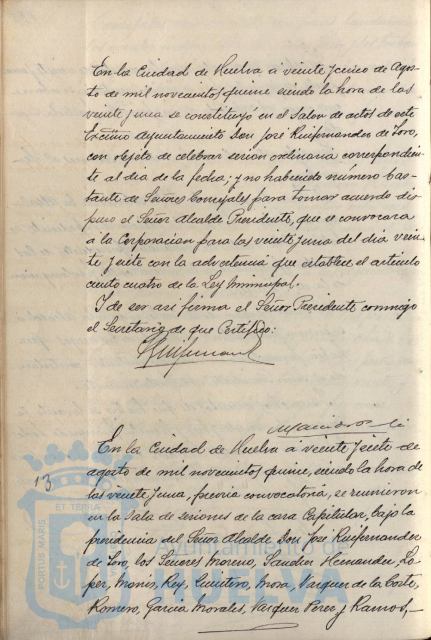 En la Ciudad de Huelva á veinte y cinco de Agos-
to de mil novecientos quince siendo la hora de las
veinte y una se constituyó en el Salon de actos de este
Excmo Ayuntamiento Don José Ruifernandez de Toro,
con objeto de celebrar sesion ordinaria correspondien-
te al dia de la fecha; y no habiendo número bas-
tante de Señores Concejales para tomar acuerdo dis-
puso el Señor Alcalde Presidente, que se convocara
á la Corporacion para las veinte y una del dia vein-
te y siete con la advertencia que establece el articulo
ciento cuatro de la Ley Municipal.
Y de ser asi firma el Señor Presidente conmigo
el Secretario de que Certifico:
En la Ciudad de Huelva á veinte y siete de
agosto de mil novecientos quince, siendo la hora de
las veinte y una, previa convocatoria, se reunieron
13
en la Sala de sesiones de la casa Capitular, bajo la
presidencia del Señor Alcalde Don José Ruifernandez
de Toro, los Señores Moreno, Sanchez Hernandez, Lo-
pez, Monís, Rey, Quintero, Mora, Vazquez de la Corte,
Romero, Garcia Morales, Vazquez Perez y Ramos,
PORTUS MARIS
ET TERRA
Ayuntamiento de
HUELVA